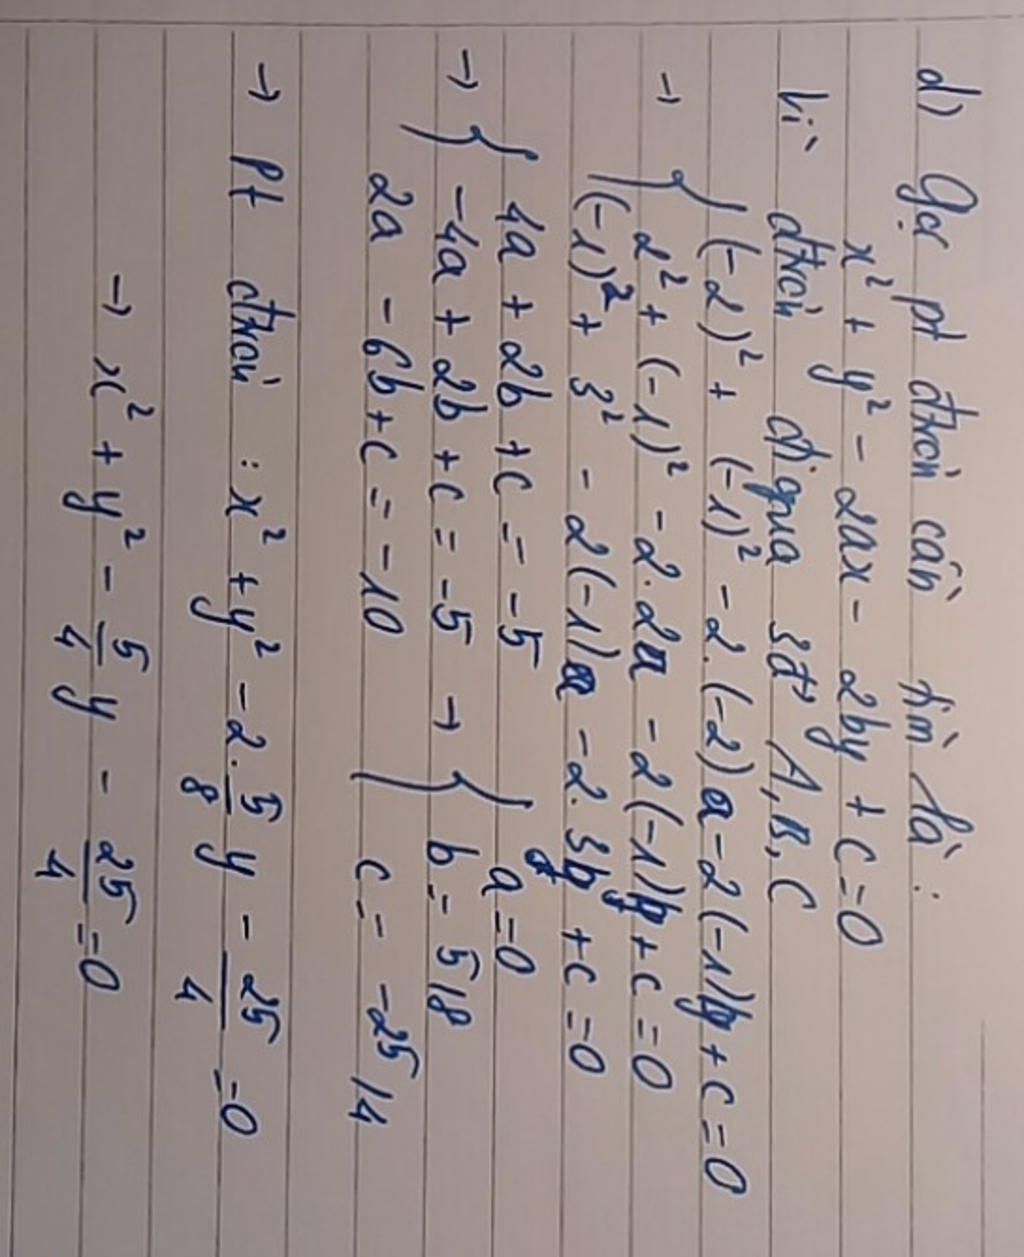 d) Gọi pt đtròn cần tìm là :
x² + y² - 2ax - 2by + c = 0
Vì đtròn đi qua 3đ' A, B, C
→ { (-2)² + (-1)² - 2.(-2)a - 2(-1)b + c = 0
2² + (-1)² - 2.2a - 2(-1)b + c = 0
(-1)² + 3² - 2(-1)a - 2.3b + c = 0
→ { 4a + 2b + c = -5 → { a = 0
-4a + 2b + c = -5 b = 5/8
2a - 6b + c = -10 c = -25/4
→ Pt đtròn : x² + y² - 2.5/8 y - 25/4 = 0
→ x² + y² - 5/4 y - 25/4 = 0